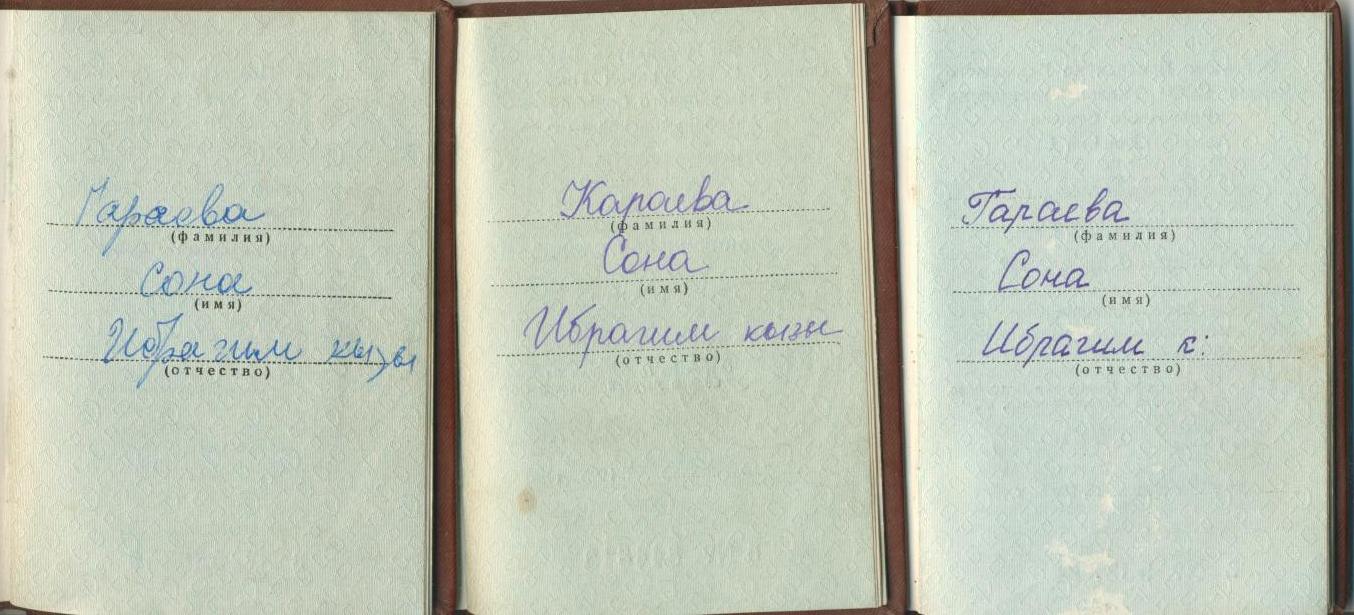 Гараева
(фамилия)
Сона
(имя)
Ибрагим кызы
(отчество)
Караева
(фамилия)
Сона
(имя)
Ибрагим кызы
(отчество)
Гараева
(фамилия)
Сона
(имя)
Ибрагим к:
(отчество)